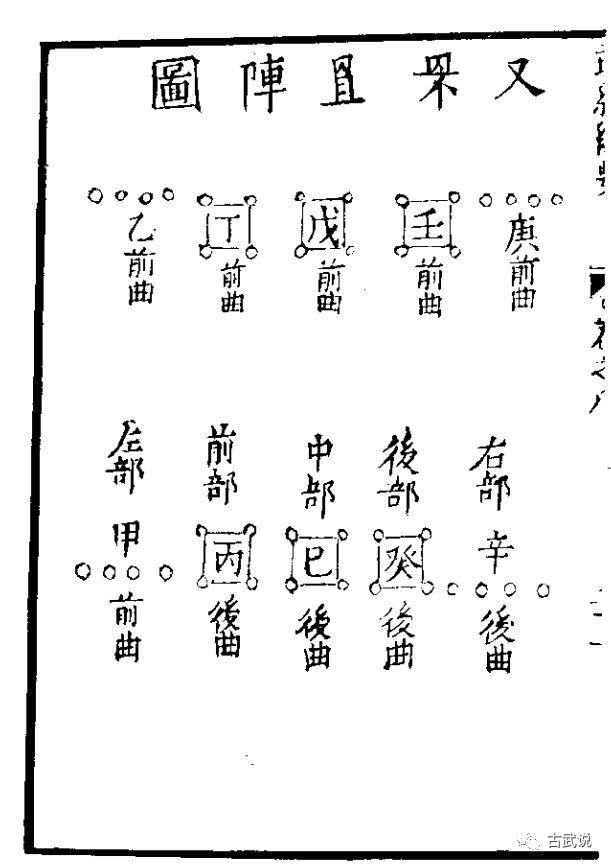 又罘罝陣圖
庚前曲
壬前曲
戊前曲
丁前曲
乙前曲
右部
辛
後曲
後部
癸
後曲
中部
巳
後曲
前部
丙
後曲
左部
甲
前曲
古武说